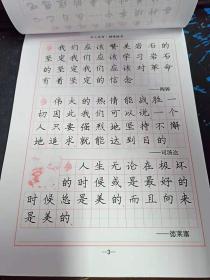 我们应该赞美岩石的
坚定我们应该学习岩石
的坚定我们应该对革命
有着坚定的信念
——陶铸
伟大的热情能战胜一
切因此我们可以说一个
人只要强烈地坚持不懈
地追求就能达到目的
——司汤达
人生无论在极坏
的时候或是最好的
时候总是美的而且向来
是美的
——德莱塞
—3—